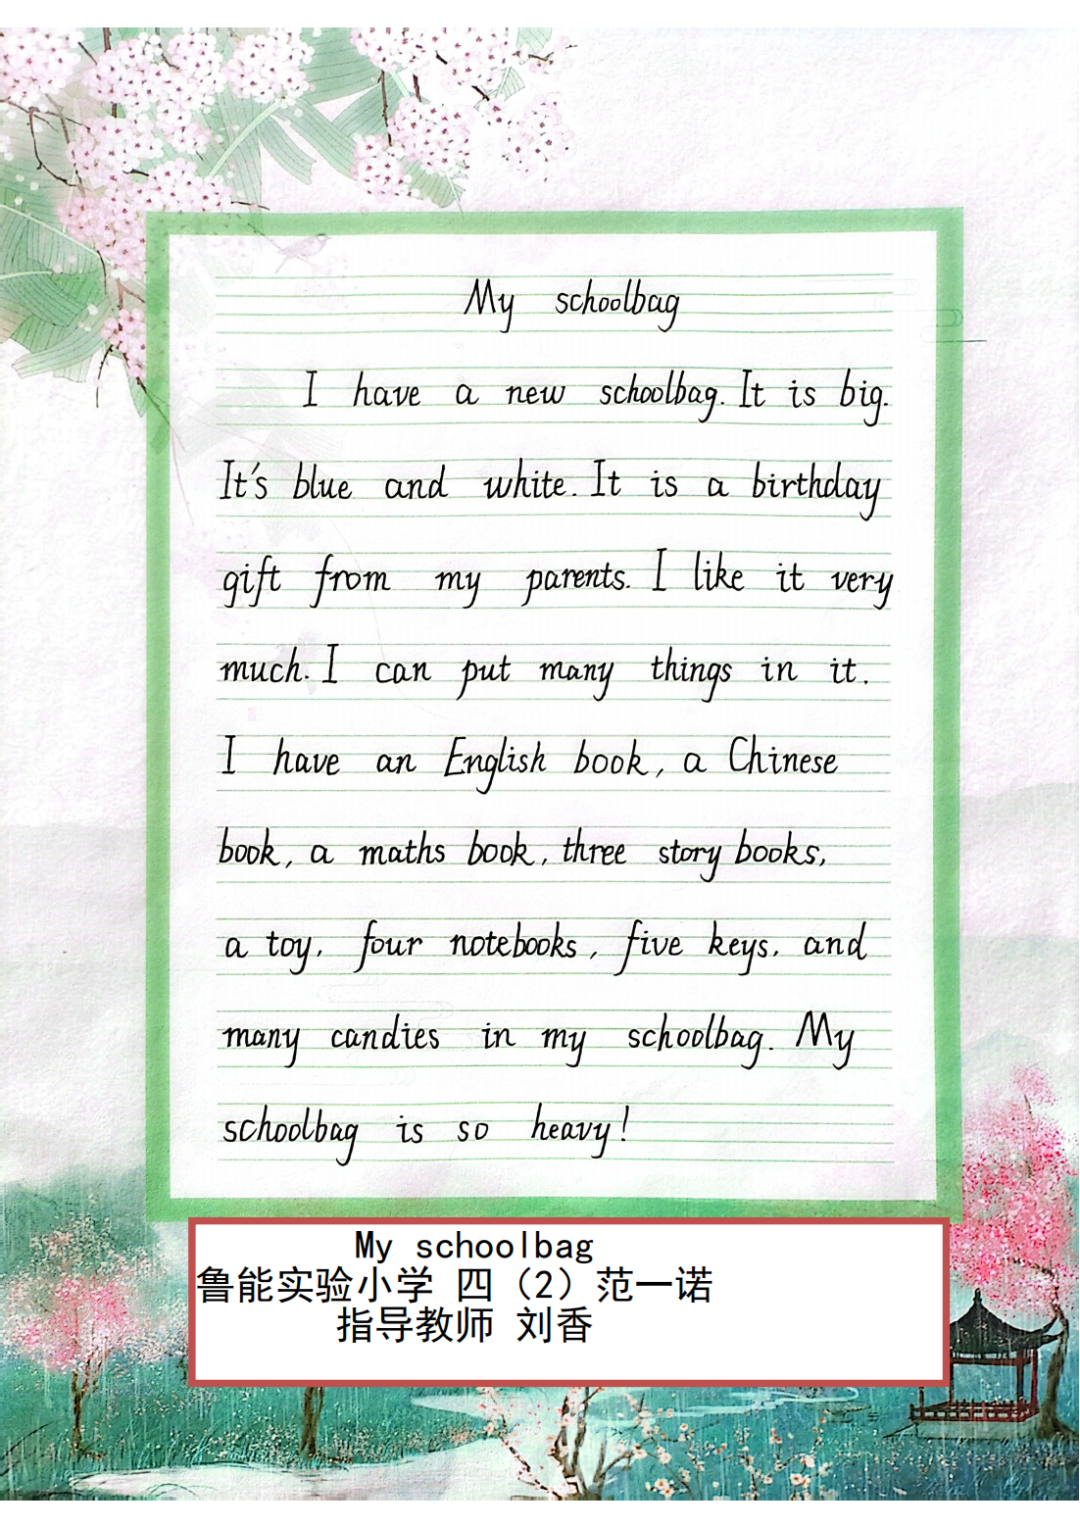 My schoolbag
I have a new schoolbag. It is big.
It's blue and white. It is a birthday
gift from my parents. I like it very
much. I can put many things in it.
I have an English book, a Chinese
book, a maths book, three story books,
a toy, four notebooks, five keys, and
many candies in my schoolbag. My
schoolbag is so heavy!
My schoolbag
鲁能实验小学 四（2）范一诺
指导教师 刘香